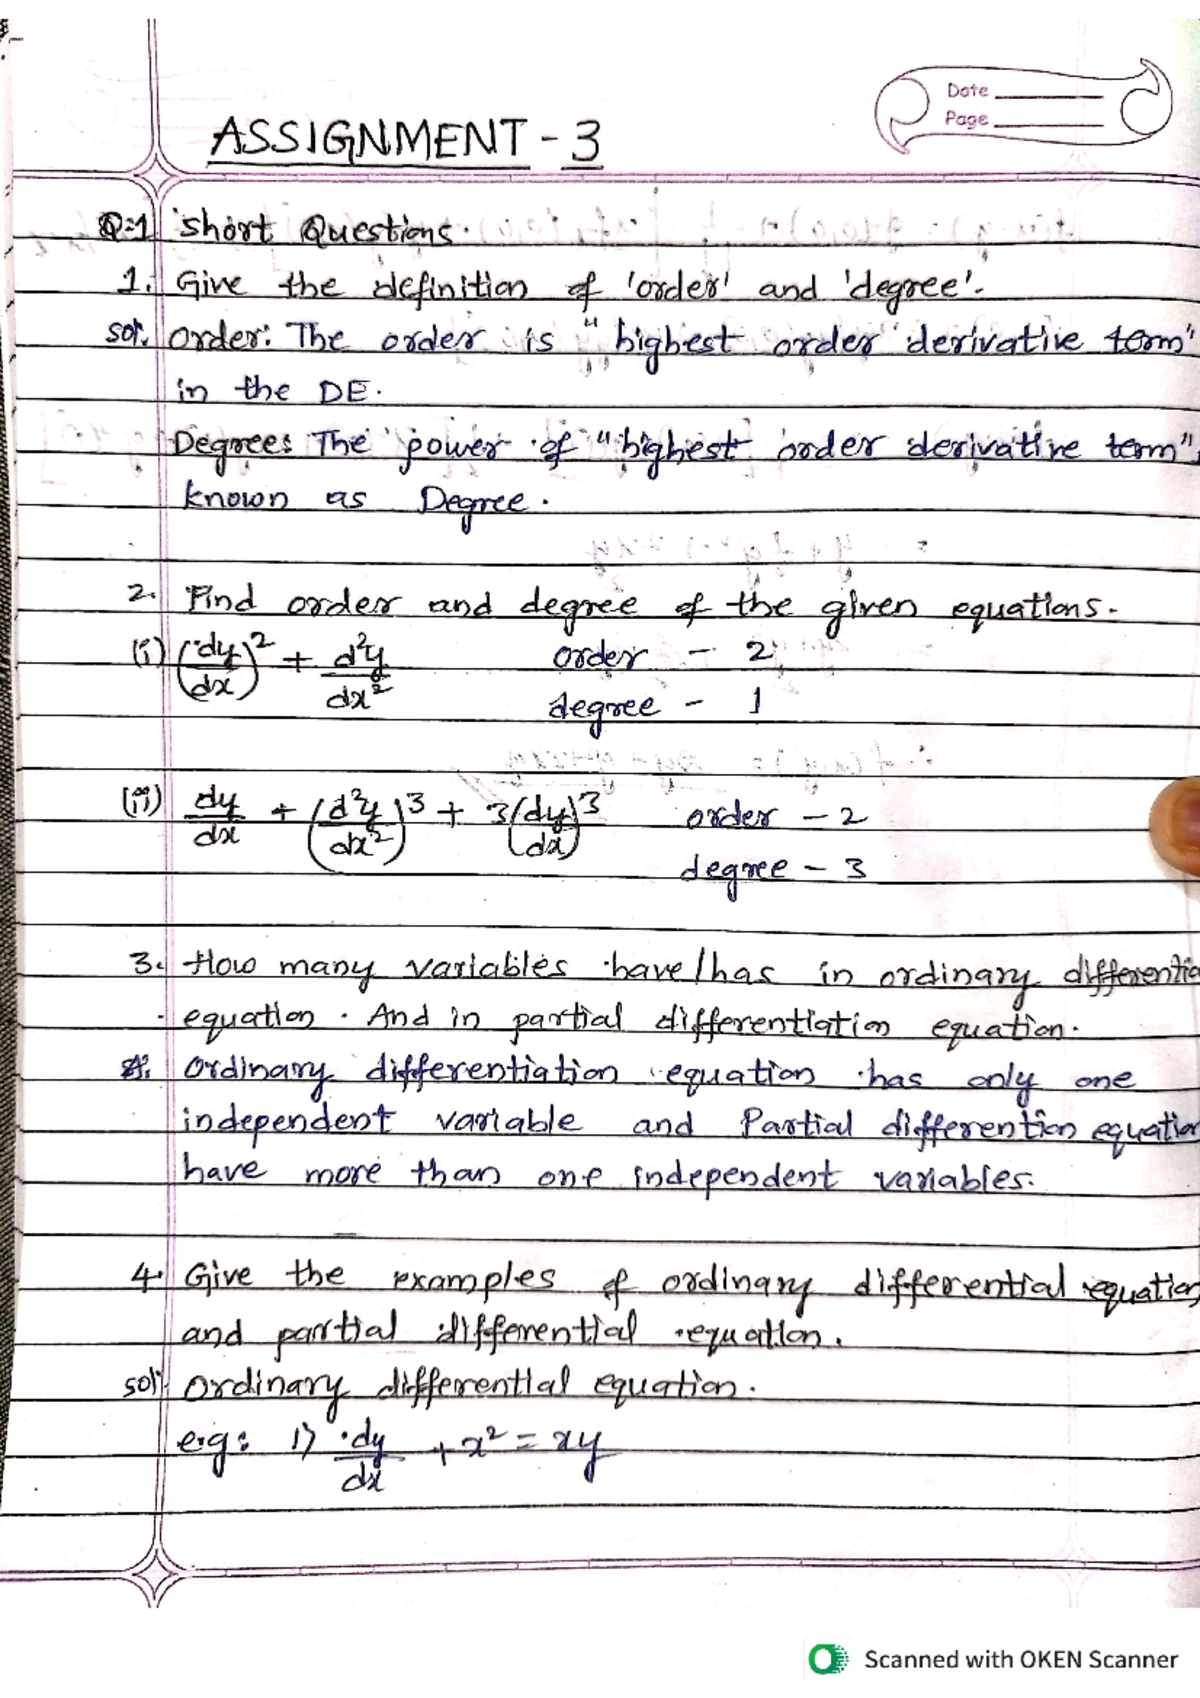 Date
Page
ASSIGNMENT - 3
Q:1 Short Questions.
1. Give the definition of 'order' and 'degree'.
Sol. Order: The order is "highest order derivative term"
in the DE.
Degree: The power of "highest order derivative term",
known as Degree.
2. Find order and degree of the given equations.
(i) (dy/dx)² + d²y/dx² order - 2
degree - 1
(ii) dy/dx + (d²y/dx²)³ + 3(dy/dx)³ order - 2
degree - 3
3. How many variables have/has in ordinary differentia
equation. And in partial differentiation equation.
A. Ordinary differentiation equation has only one
independent variable and Partial differention equation
have more than one independent variables.
4. Give the examples of ordinary differential equation
and partial differential equation.
Sol. Ordinary differential equation.
e.g: 1) dy/dx + x² = xy
Scanned with OKEN Scanner